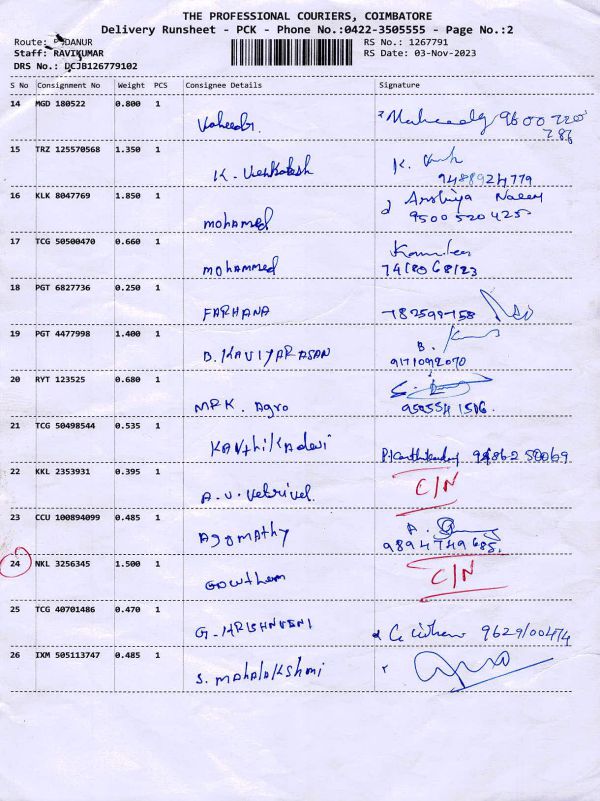 THE PROFESSIONAL COURIERS, COIMBATORE
Delivery Runsheet - PCK - Phone No.:0422-3505555 - Page No.:2
Route: DANUR RS No.: 1267791
Staff: RAVIKUMAR RS Date: 03-Nov-2023
DRS No.: DCJB126779102
S No Consignment No Weight PCS Consignee Details Signature
14 MGD 180522 0.800 1
9600720
786
15 TRZ 125570568 1.350 1
K. Venkatesh K.
9488924779
16 KLK 8047769 1.850 1
mohamed Arshiya
9500520425
17 TCG 50500470 0.660 1
mohammed
7418068123
18 PGT 6827736 0.250 1
FARHANA
19 PGT 4477998 1.400 1
B. KAVIYARASAN B.
9171092070
20 RYT 123525 0.680 1
MRK. Agro
21 TCG 50498544 0.535 1
Kanthikadevi 94862 50069
22 KKL 2353931 0.395 1
A.V. Vetrivel. C/N
23 CCU 100894099 0.485 1
Agomathy A.
9894749685.
24 NKL 3256345 1.500 1
Gowthem C/N
25 TCG 40701486 0.470 1
G. KRISHNVENI 9629100474
26 IXM 505113747 0.485 1
S. Mahalakshmi